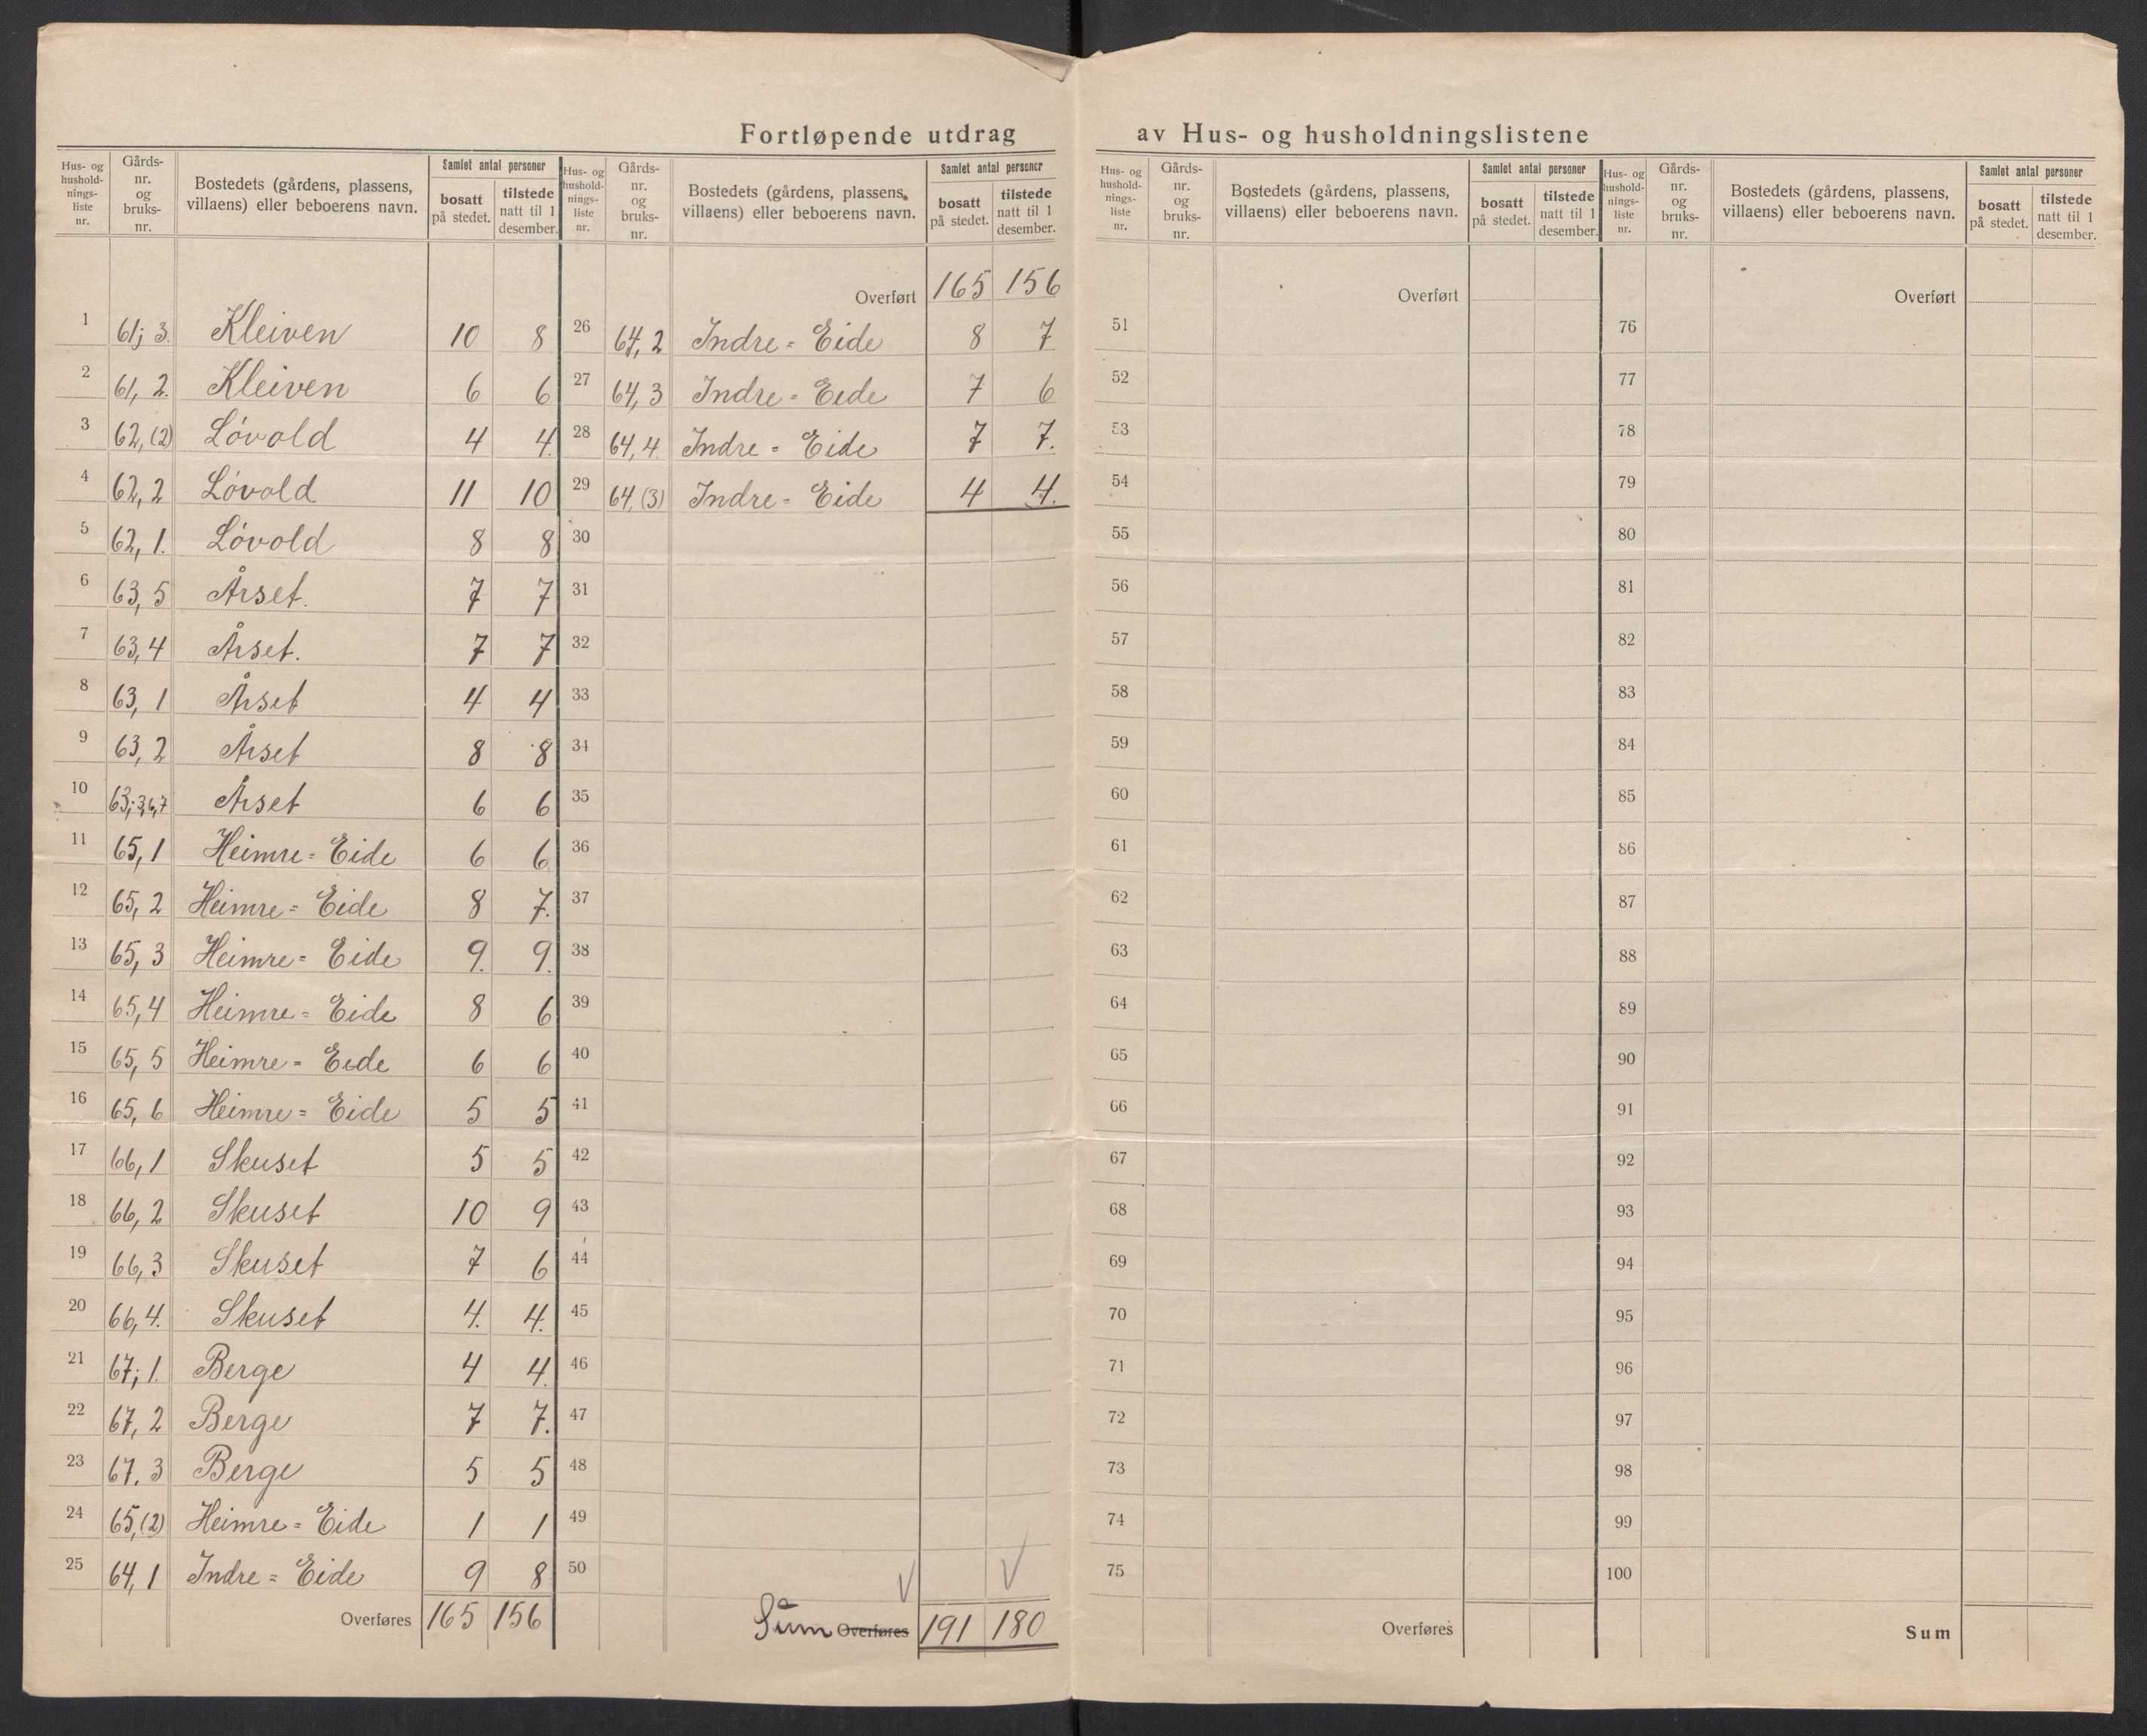 Fortløpende utdrag av Hus- og husholdningslistene
Hus- og husholdnings-liste nr. | Gårds-nr. og bruks-nr. | Bostedets (gårdens, plassens, villaens) eller beboerens navn. | Samlet antal personer bosatt på stedet. | tilstede natt til 1 desember.
1 61; 3. Kleiven 10 8
2 61, 2. Kleiven 6 6
3 62, (2) Lóvold 4 4.
4 62, 2 Lóvold 11 10
5 62, 1. Lóvold 8 8
6 63, 5 Årset. 7 7
7 63, 4 Årset. 7 7
8 63, 1 Årset 4 4
9 63, 2 Årset 8 8
10 63; 3,6,7 Årset 6 6
11 65, 1 Heimre = Eide 6 6
12 65, 2 Heimre = Eide 8 7.
13 65, 3 Heimre = Eide 9. 9.
14 65, 4 Heimre = Eide 8 6
15 65, 5 Heimre = Eide 6 6
16 65, 6 Heimre = Eide 5 5
17 66, 1 Skuset 5 5
18 66, 2 Skuset 10 9
19 66, 3 Skuset 7 6
20 66, 4. Skuset 4. 4.
21 67; 1. Berge 4 4.
22 67, 2 Berge 7 7.
23 67. 3 Berge 5 5
24 65, (2) Heimre = Eide 1 1
25 64, 1 Indre = Eide 9 8
Overføres 165 156
Hus- og husholdnings-liste nr. | Gårds-nr. og bruks-nr. | Bostedets (gårdens, plassens, villaens) eller beboerens navn. | Samlet antal personer bosatt på stedet. | tilstede natt til 1 desember.
Overført 165 156
26 64, 2 Indre = Eide 8 7
27 64, 3 Indre = Eide 7 6
28 64, 4. Indre = Eide 7 7.
29 64, (3) Indre = Eide 4 4.
30
31
32
33
34
35
36
37
38
39
40
41
42
43
44
45
46
47
48
49
50
Sum Overføres 191 180
Hus- og husholdnings-liste nr. | Gårds-nr. og bruks-nr. | Bostedets (gårdens, plassens, villaens) eller beboerens navn. | Samlet antal personer bosatt på stedet. | tilstede natt til 1 desember.
Overført
51
52
53
54
55
56
57
58
59
60
61
62
63
64
65
66
67
68
69
70
71
72
73
74
75
Overføres
Hus- og husholdnings-liste nr. | Gårds-nr. og bruks-nr. | Bostedets (gårdens, plassens, villaens) eller beboerens navn. | Samlet antal personer bosatt på stedet. | tilstede natt til 1 desember.
Overført
76
77
78
79
80
81
82
83
84
85
86
87
88
89
90
91
92
93
94
95
96
97
98
99
100
Sum